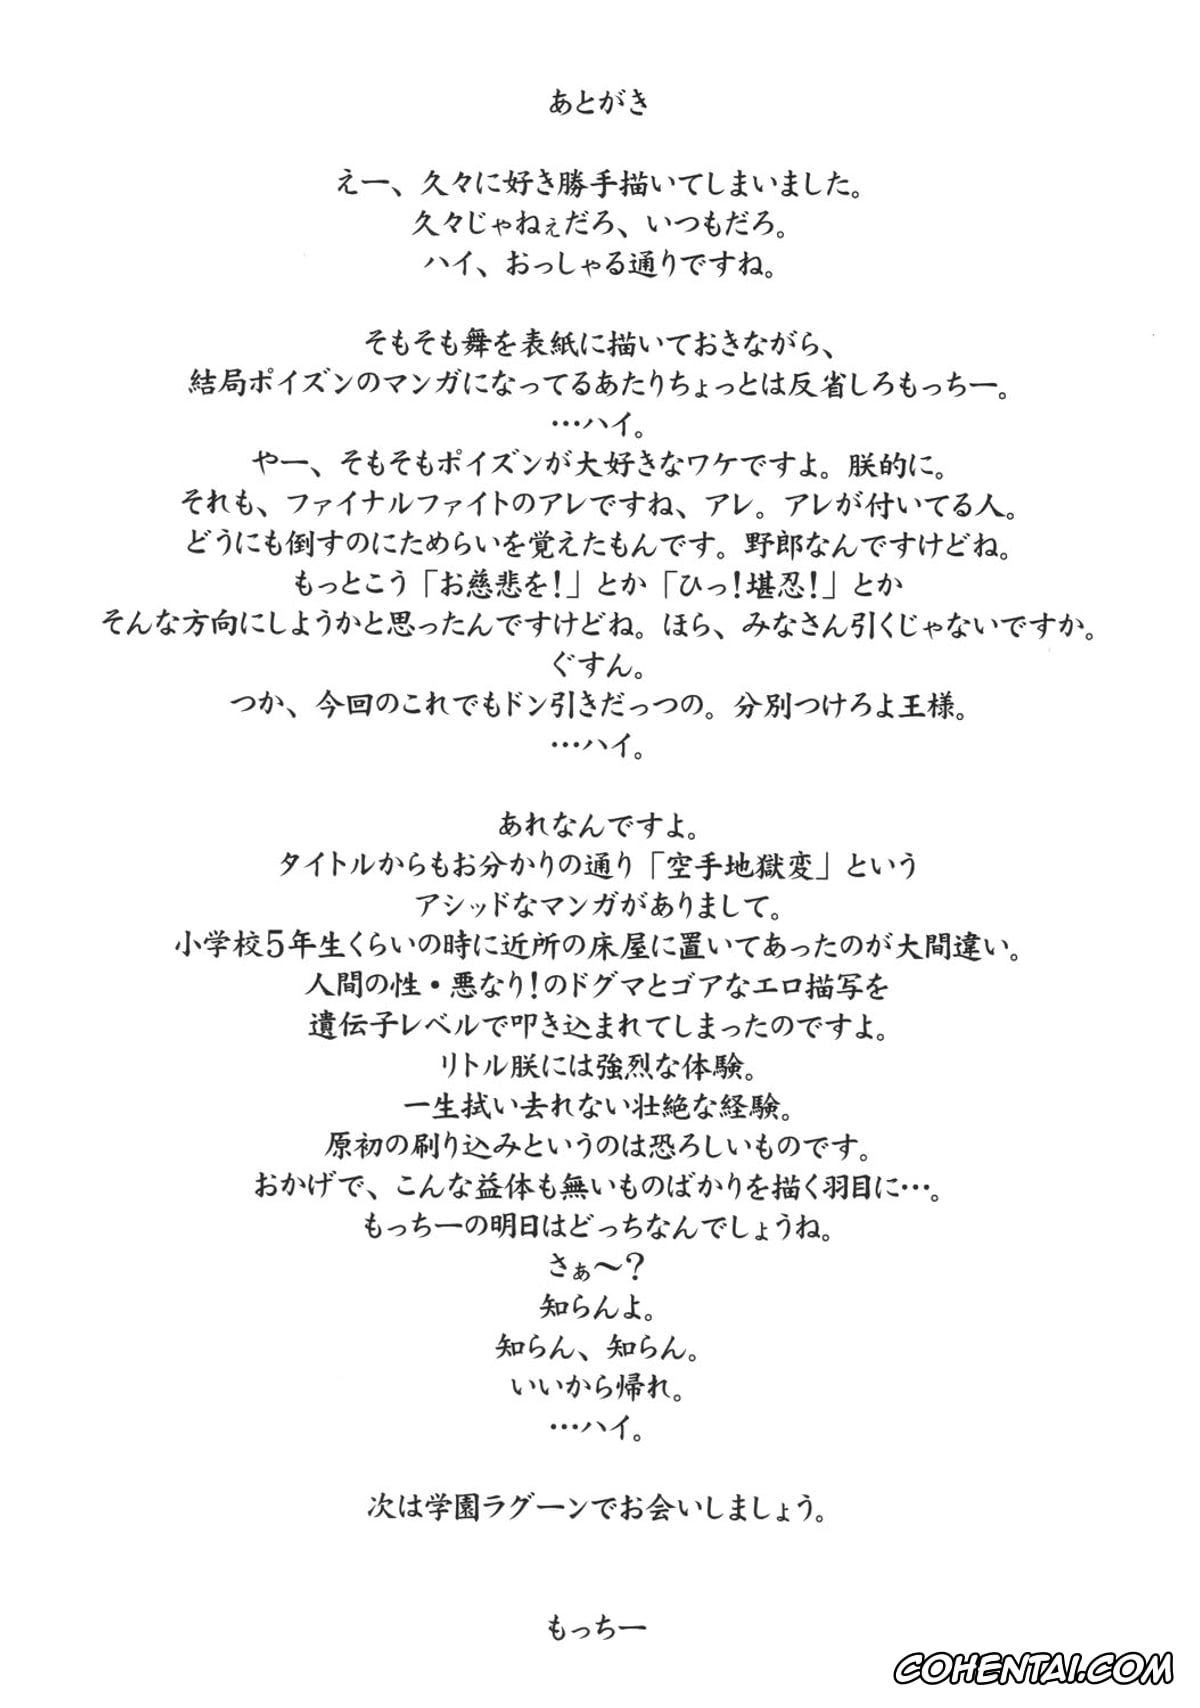 あとがき
えー、久々に好き勝手描いてしまいました。
久々じゃねぇだろ、いつもだろ。
ハイ、おっしゃる通りですね。
そもそも舞を表紙に描いておきながら、
結局ポイズンのマンガになってるあたりちょっとは反省しろもっちー。
…ハイ。
やー、そもそもポイズンが大好きなワケですよ。朕的に。
それも、ファイナルファイトのアレですね、アレ。アレが付いてる人。
どうにも倒すのにためらいを覚えたもんです。野郎なんですけどね。
もっとこう「お慈悲を!」とか「ひっ!堪忍!」とか
そんな方向にしようかと思ったんですけどね。ほら、みなさん引くじゃないですか。
ぐすん。
つか、今回のこれでもドン引きだっつの。分別つけろよ王様。
…ハイ。
あれなんですよ。
タイトルからもお分かりの通り「空手地獄変」という
アシッドなマンガがありまして。
小学校5年生くらいの時に近所の床屋に置いてあったのが大間違い。
人間の性・悪なり!のドグマとゴアなエロ描写を
遺伝子レベルで叩き込まれてしまったのですよ。
リトル朕には強烈な体験。
一生拭い去れない壮絶な経験。
原初の刷り込みというのは恐ろしいものです。
おかげで、こんな益体も無いものばかりを描く羽目に…。
もっちーの明日はどっちなんでしょうね。
さぁ〜?
知らんよ。
知らん、知らん。
いいから帰れ。
…ハイ。
次は学園ラグーンでお会いしましょう。
もっちー
COHENTAI.COM